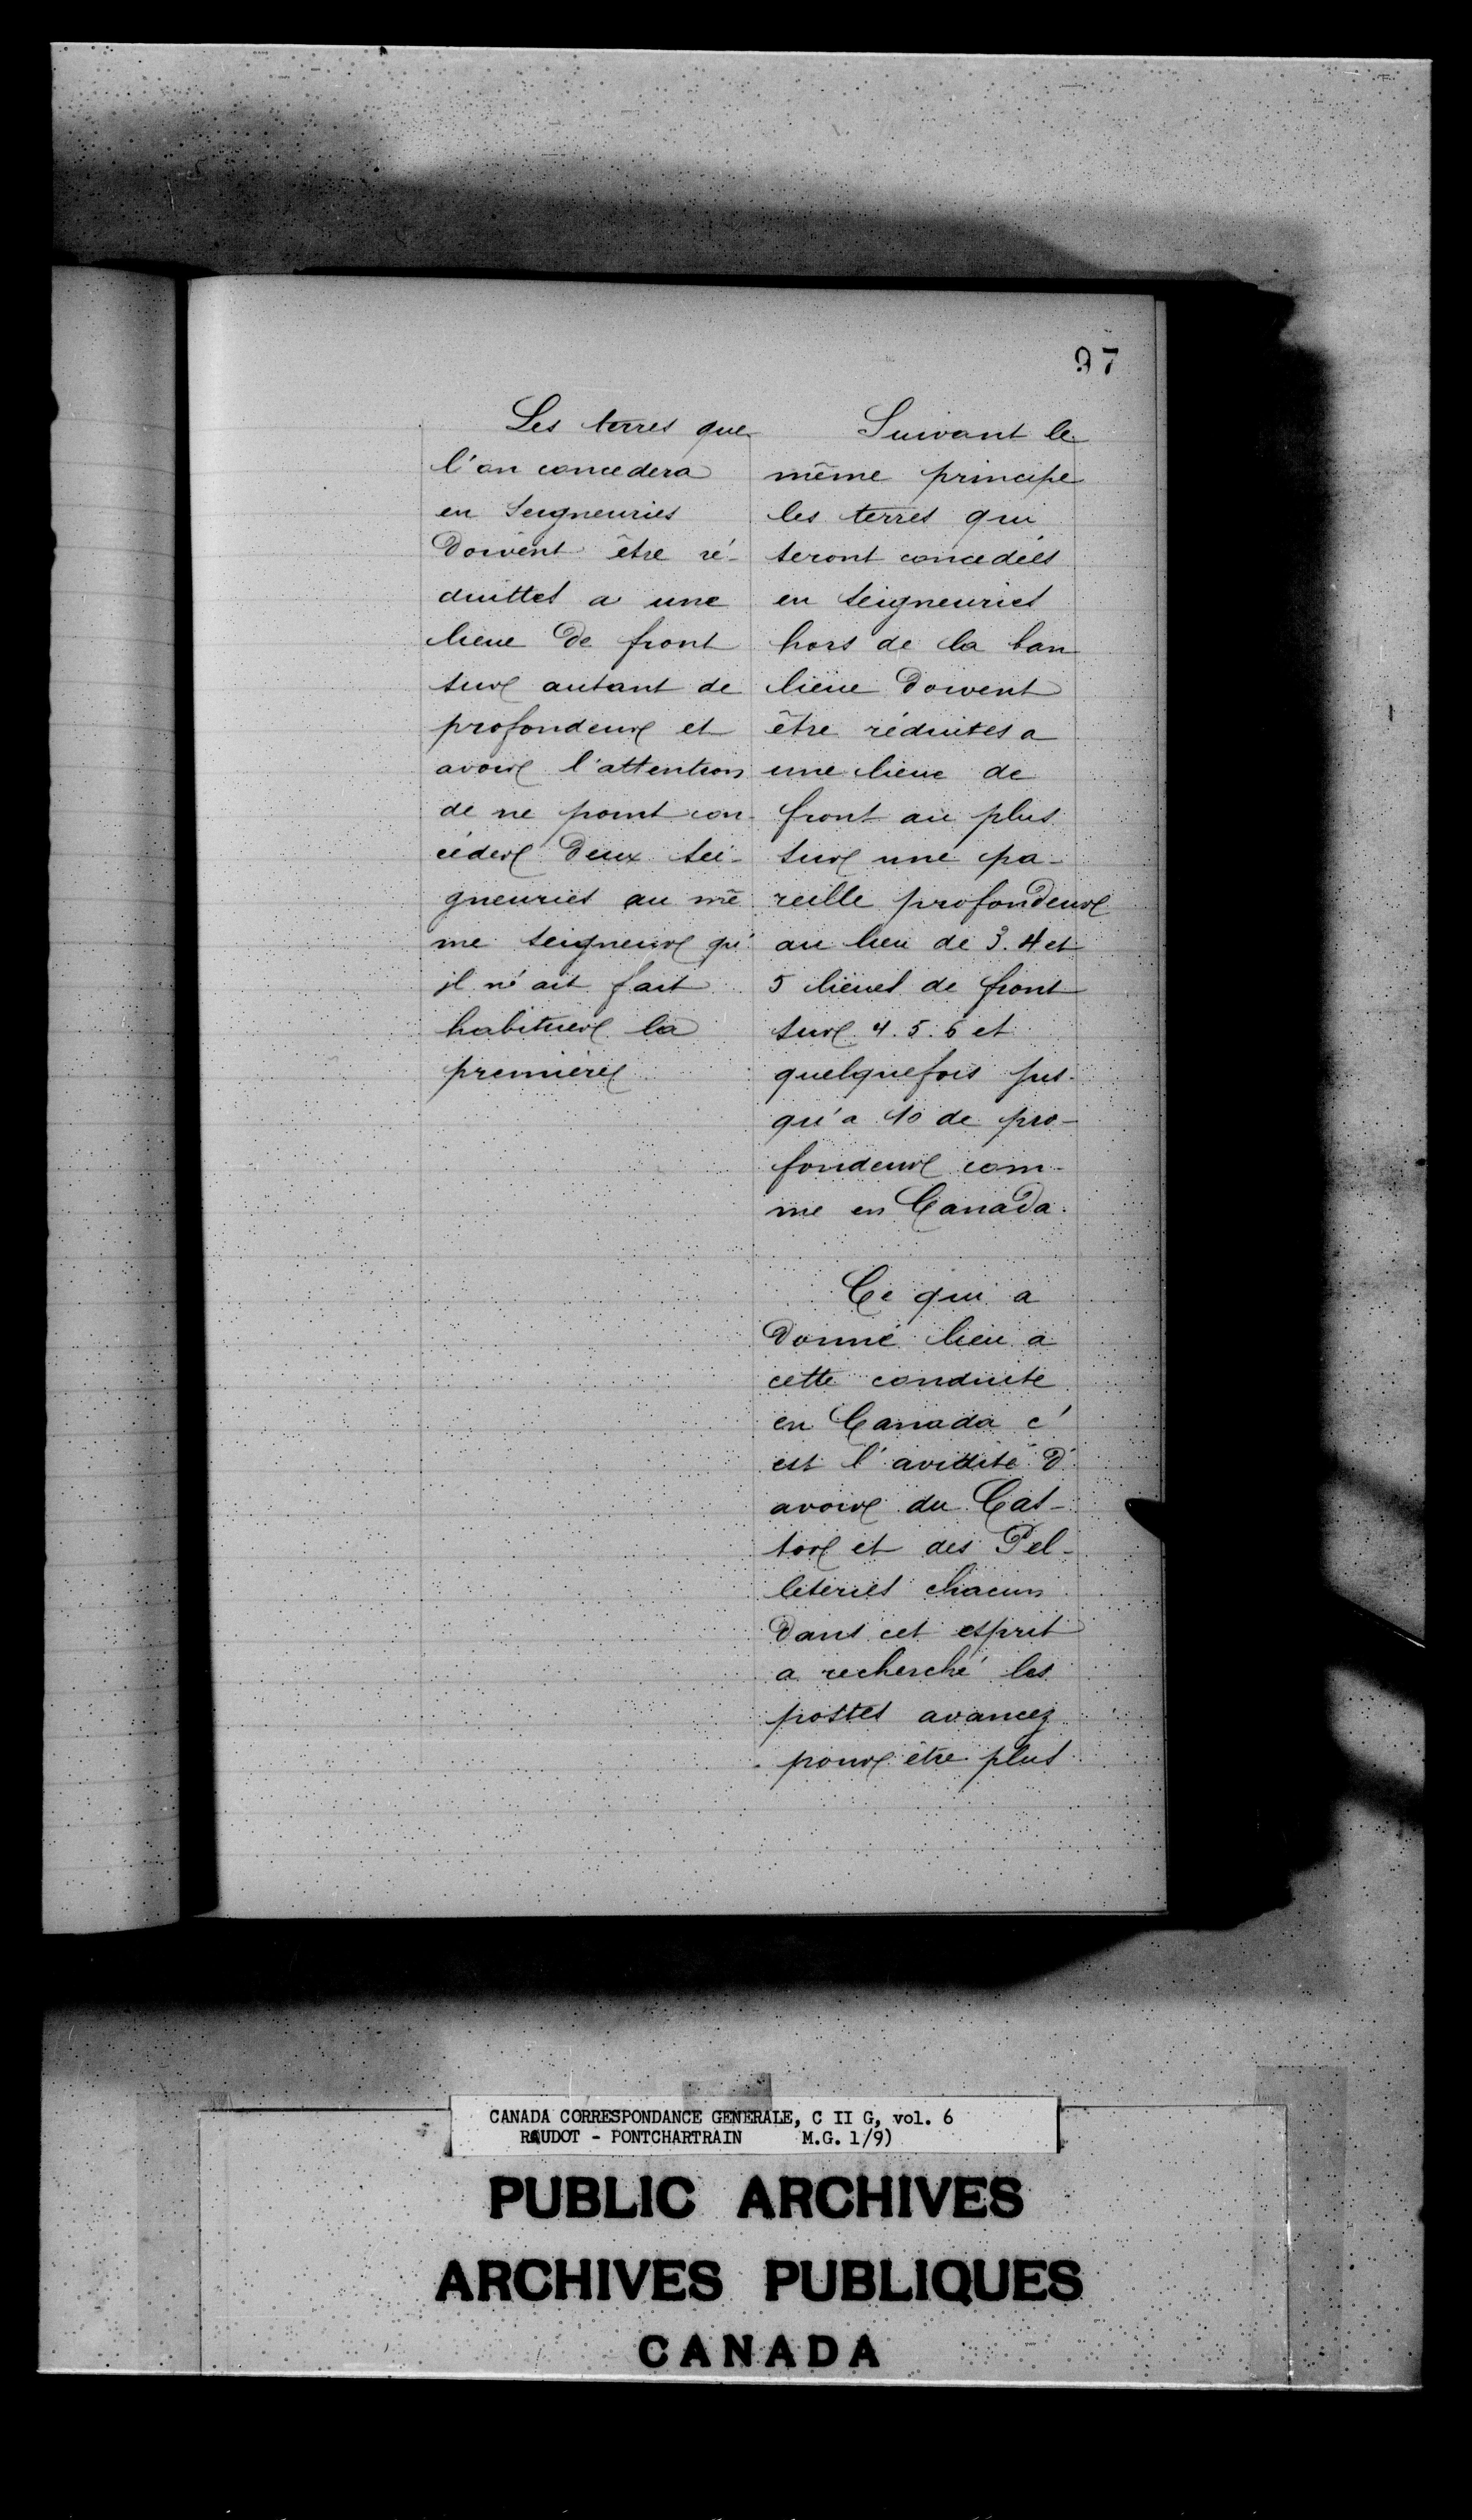 97
Les terres que
l'on concedera
en Seigneuries
Doivent être ré-
duittes a une
lieue De front
sur autant de
profondeur et
avoir l'attention
de ne point con-
céder Deux Sei-
gneuries au mê
me seigneur qu'
il n'ait fait
habituer la
première
Suivant le
même principe
les terres qui
seront concedées
en seigneuries
hors de la ban
lieüe Doivent
être réduites a
une lieue de
front au plus
sur une pa-
reille profondeur
au lieu de 3. 4 et
5 lieues de front
sur 4. 5. 6 et
quelquefois jus-
qu'a 10 de pro-
fondeur com-
me en Canada.
Ce qui a
Donné lieu a
cette conduite
en Canada c'
est l'avidité d'
avoir du Cas-
tor et des Pel-
leteries chacun
Dans cet esprit
a recherché les
postes avancez
pour être plus
CANADA CORRESPONDANCE GENERALE, C II G, vol. 6
RAUDOT - PONTCHARTRAIN M.G. 1/9)
PUBLIC ARCHIVES
ARCHIVES PUBLIQUES
CANADA